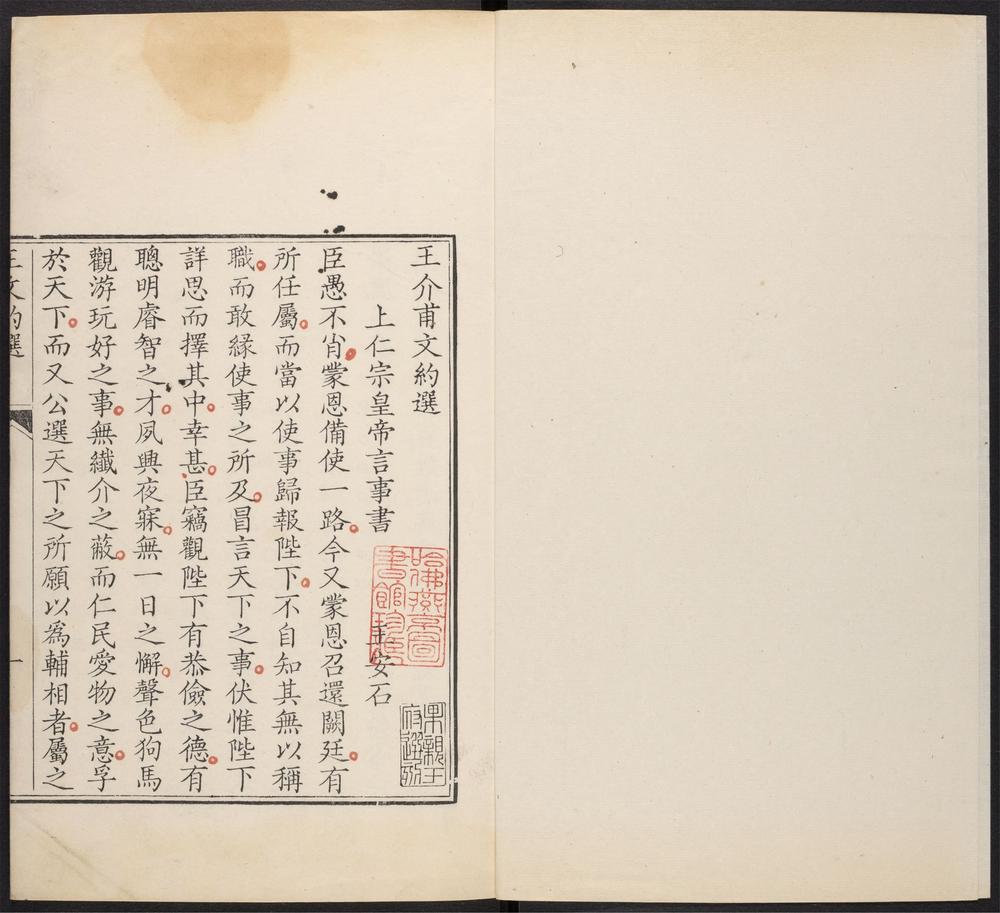 王介甫文約選
上仁宗皇帝言事書
王安石
臣愚不肖蒙恩備使一路今又蒙恩召還闕廷有
所任屬而當以使事歸報陛下不自知其無以稱
職而敢緣使事之所及冒言天下之事伏惟陛下
詳思而擇其中幸甚臣竊觀陛下有恭儉之德有
聰明睿智之才夙興夜寐無一日之懈聲色狗馬
觀游玩好之事無纖介之蔽而仁民愛物之意孚
於天下而又公選天下之所願以爲輔相者屬之
王文約選
一
哈佛燕京圖
書館珍藏
果親王
府選刻